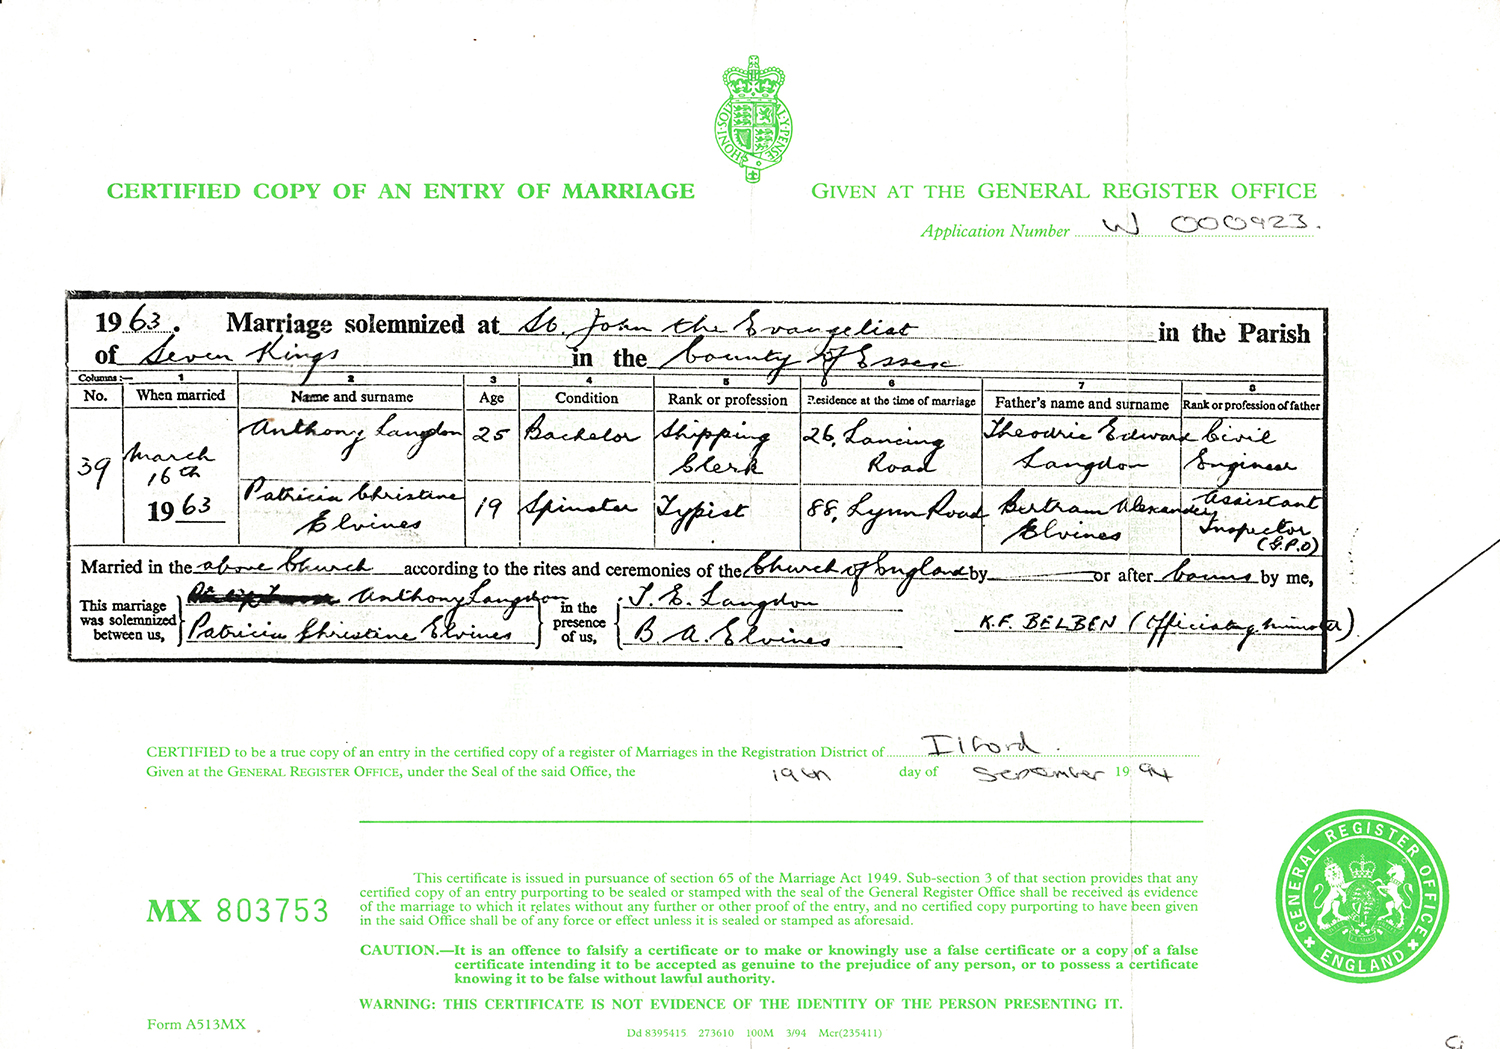 HONI·SOI AL·Y·PENSE
CERTIFIED COPY OF AN ENTRY OF MARRIAGE GIVEN AT THE GENERAL REGISTER OFFICE
Application Number W 000923.
1963. Marriage solemnized at St. John the Evangelist in the Parish
of Seven Kings in the County of Essex
Columns:— 1 2 3 4 5 6 7 8
No. When married Name and surname Age Condition Rank or profession Residence at the time of marriage Father's name and surname Rank or profession of father
39 March 16th 1963 Anthony Langdon 25 Bachelor Shipping Clerk 26, Lancing Road Theodric Edward Langdon Civil Engineer
Patricia Christine Elvines 19 Spinster Typist 88, Lynn Road Bertram Alexander Elvines Assistant Inspector (G.P.O)
Married in the above Church according to the rites and ceremonies of the Church of England by or after banns by me,
This marriage was solemnized between us, Anthony Langdon in the presence of us, T. E. Langdon
Patricia Christine Elvines B. A. Elvines K.F. BELBEN (Officiating minister)
CERTIFIED to be a true copy of an entry in the certified copy of a register of Marriages in the Registration District of Ilford.
Given at the GENERAL REGISTER OFFICE, under the Seal of the said Office, the 19th day of September 1994
This certificate is issued in pursuance of section 65 of the Marriage Act 1949. Sub-section 3 of that section provides that any
certified copy of an entry purporting to be sealed or stamped with the seal of the General Register Office shall be received as evidence
of the marriage to which it relates without any further or other proof of the entry, and no certified copy purporting to have been given
in the said Office shall be of any force or effect unless it is sealed or stamped as aforesaid.
MX 803753
CAUTION.—It is an offence to falsify a certificate or to make or knowingly use a false certificate or a copy of a false
certificate intending it to be accepted as genuine to the prejudice of any person, or to possess a certificate
knowing it to be false without lawful authority.
WARNING: THIS CERTIFICATE IS NOT EVIDENCE OF THE IDENTITY OF THE PERSON PRESENTING IT.
GENERAL REGISTER OFFICE ENGLAND
Form A513MX
Dd 8395415 273610 100M 3/94 Mcr(235411)